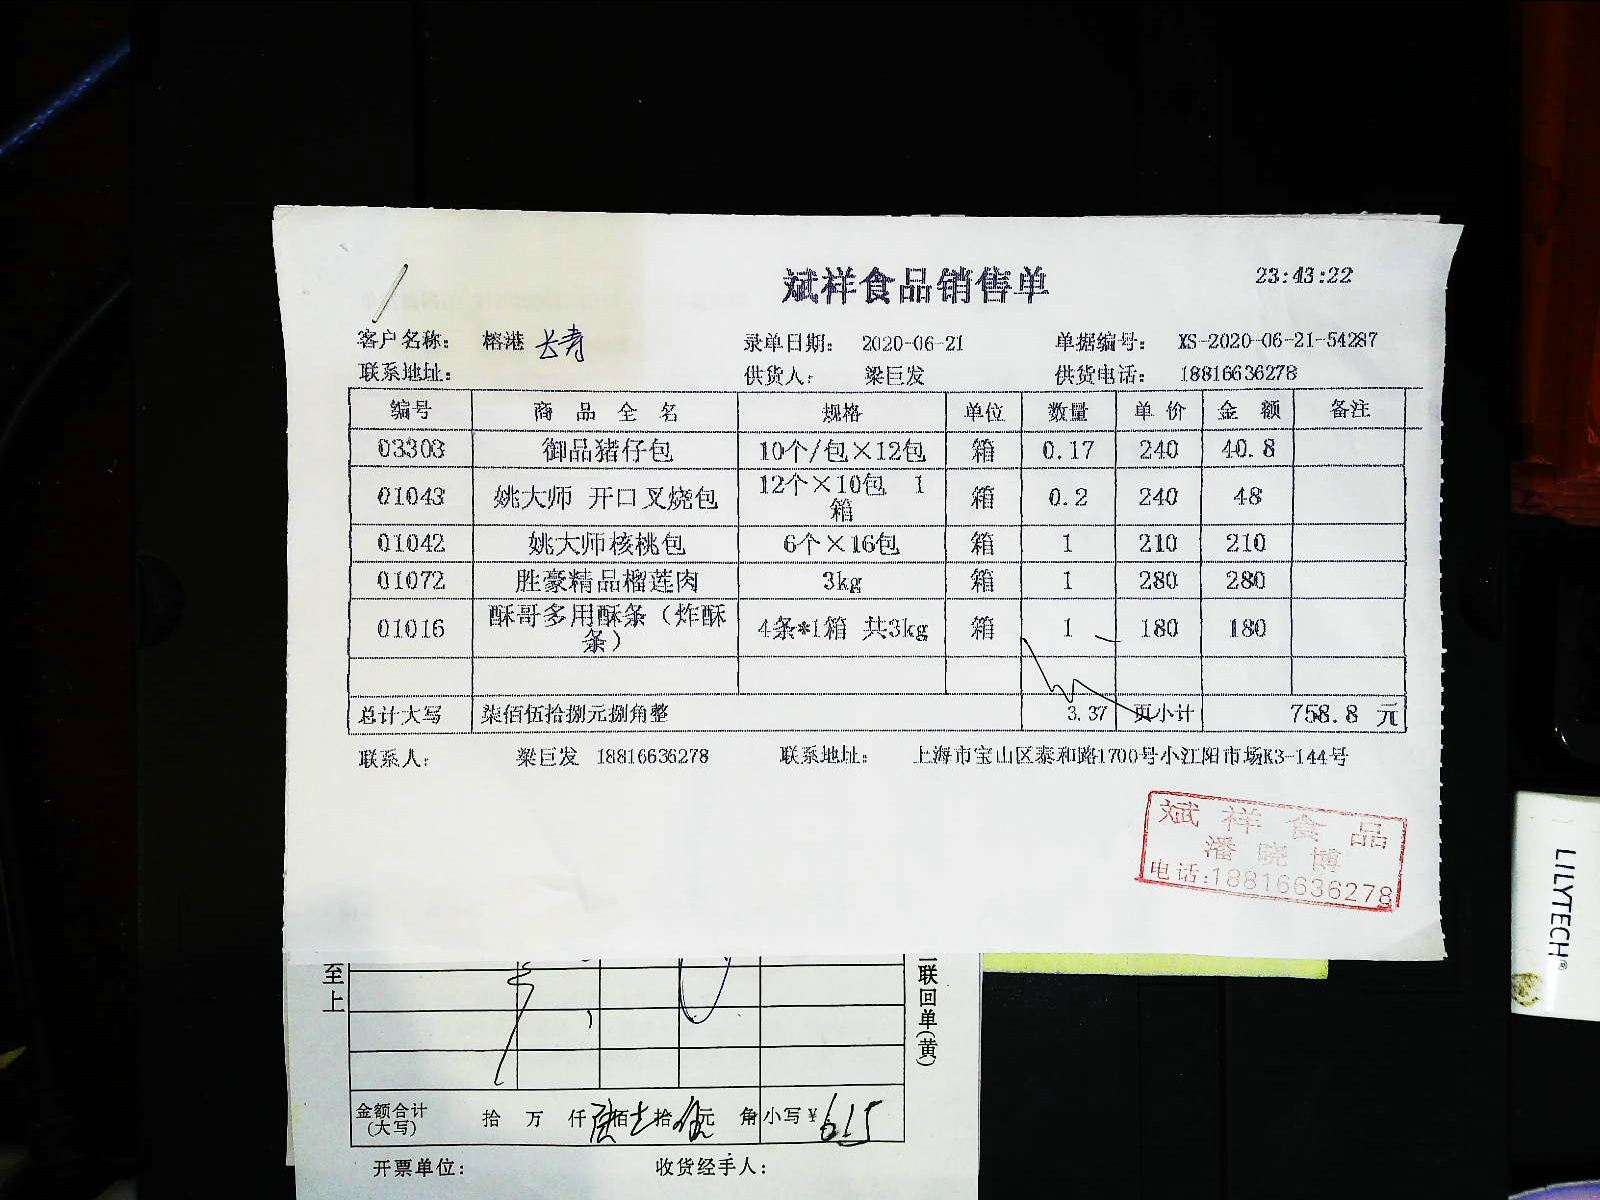 斌祥食品销售单 23:43:22
客户名称: 榕港 长寿 录单日期: 2020-06-21 单据编号: XS-2020-06-21-54287
联系地址: 供货人: 梁巨发 供货电话: 18816636278
编号 商品全名 规格 单位 数量 单价 金额 备注
03303 御品猪仔包 10个/包×12包 箱 0.17 240 40.8
01043 姚大师 开口叉烧包 12个×10包 1箱 箱 0.2 240 48
01042 姚大师核桃包 6个×16包 箱 1 210 210
01072 胜豪精品榴莲肉 3kg 箱 1 280 280
01016 酥哥多用酥条（炸酥条） 4条*1箱 共3kg 箱 1 180 180
总计大写 柒佰伍拾捌元捌角整 3.37 页小计 758.8 元
联系人: 梁巨发 18816636278 联系地址: 上海市宝山区泰和路1700号小江阳市场K3-144号
斌祥食品
潘晓博
电话:18816636278
至上
联回单(黄)
金额合计(大写) 拾 万 仟 陆佰 拾 伍元 角 小写¥ 615
开票单位: 收货经手人:
LILYTECH®